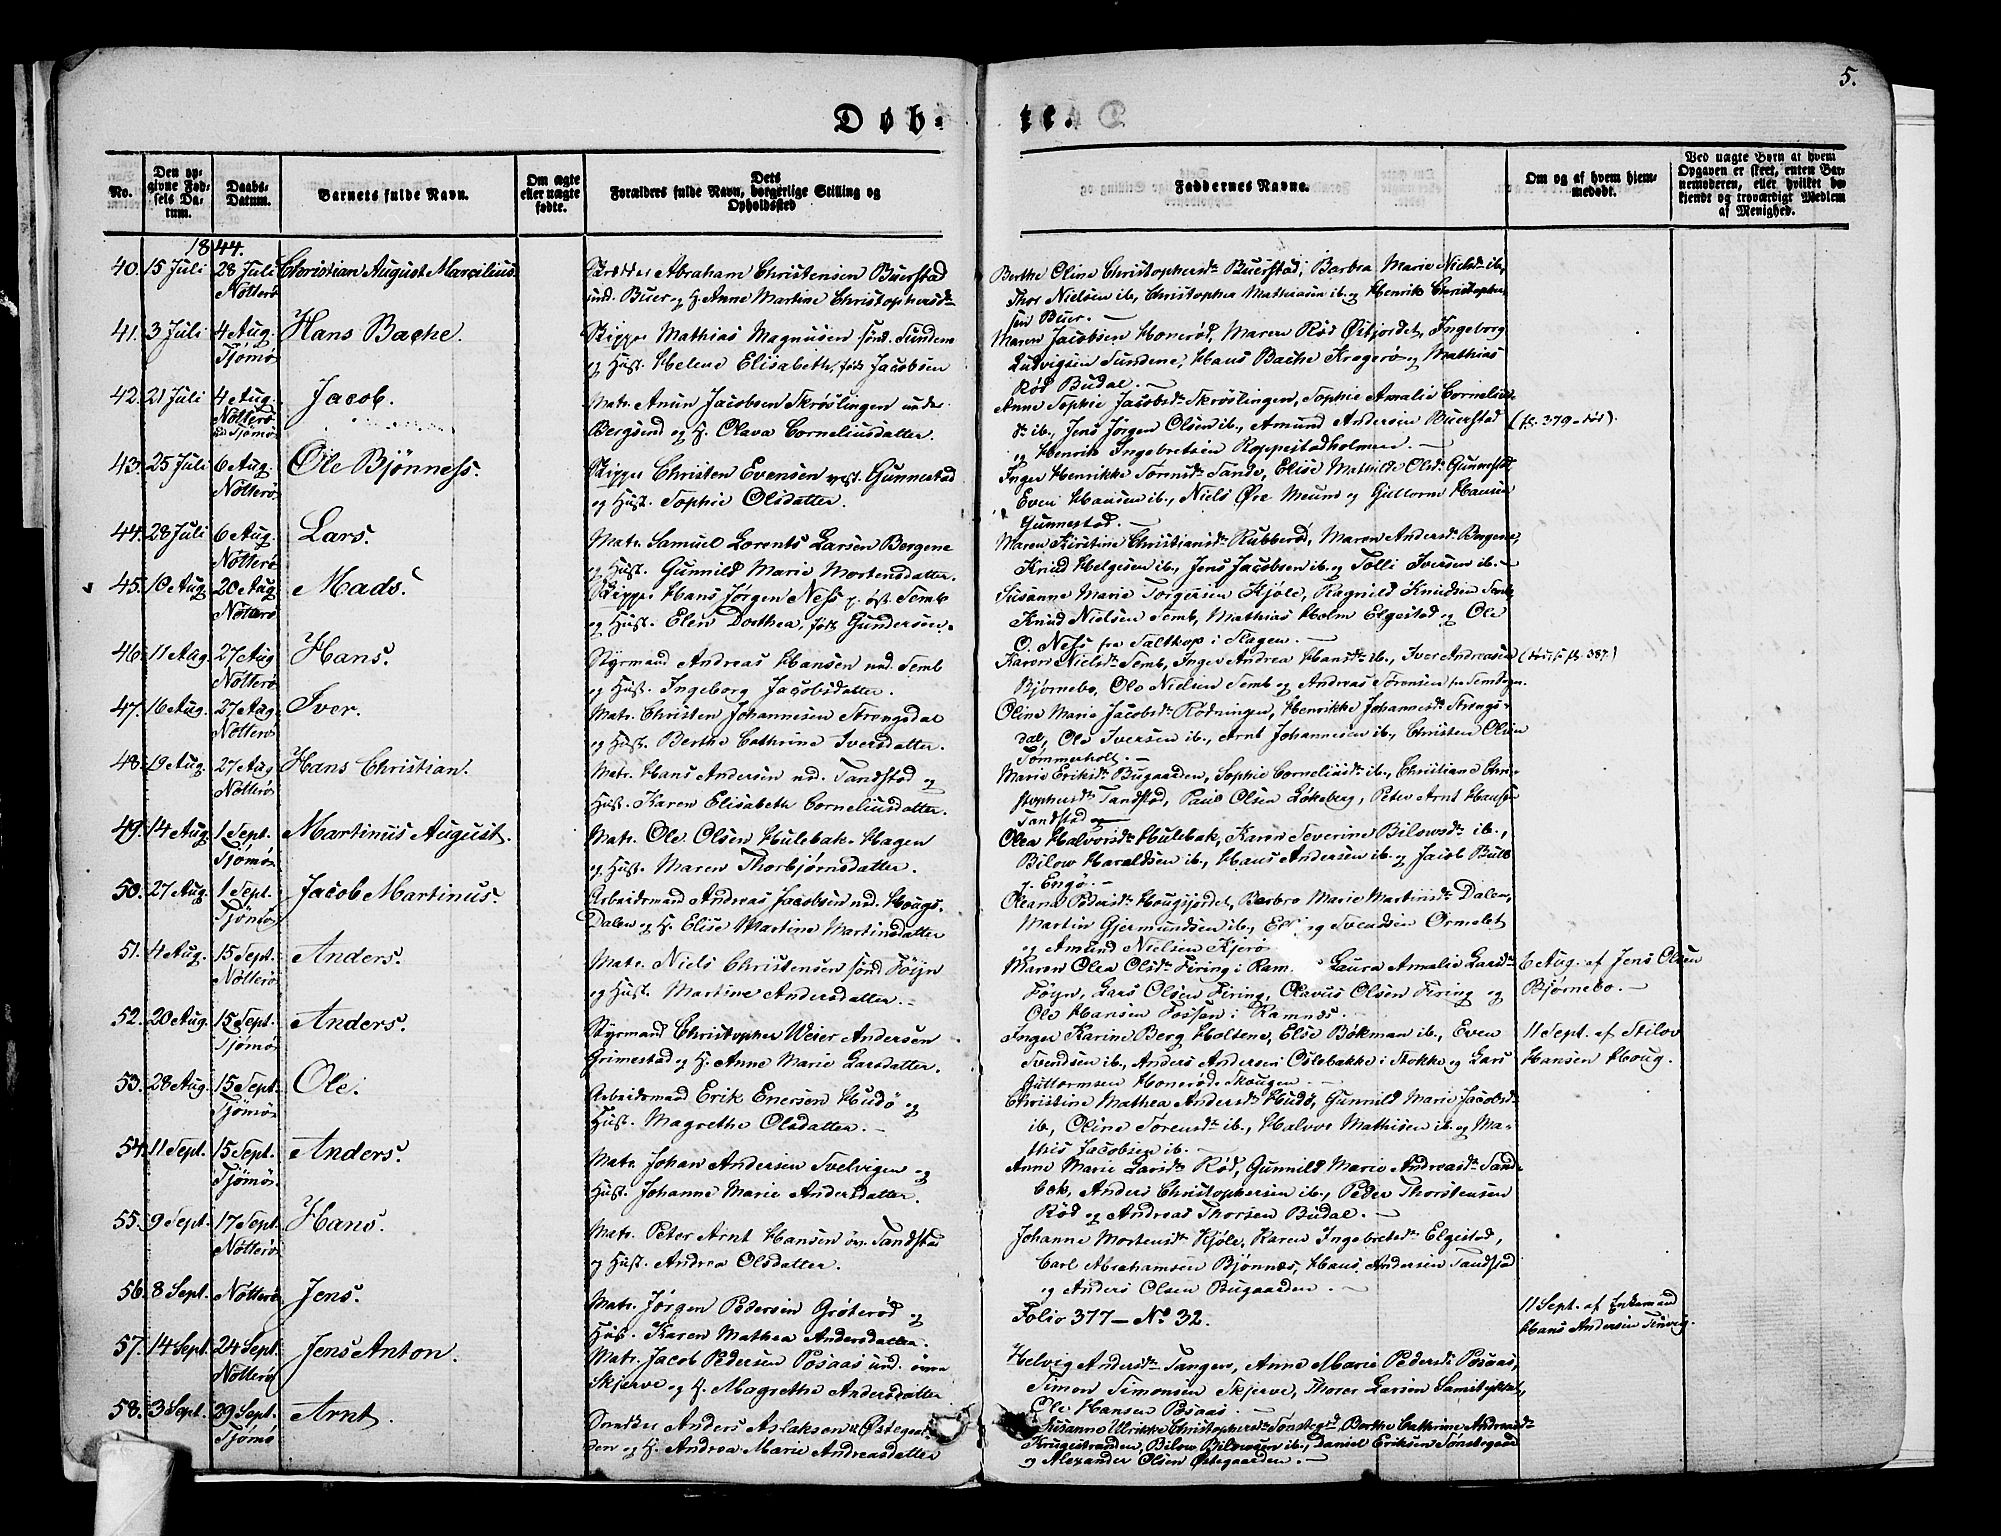 5.
Døb- te.
No.
Den opgivne Fødsels Datum.
Daabs-Datum.
Barnets fulde Navn.
Om ægte eller uægte fødte.
Dets Forældres fulde Navn, borgerlige Stilling og Opholdssted
Faddernes Navne.
Om og af hvem hjemmedøbt.
Ved uægte Børn at hvem Opgaven er skeet, enten Barnemoderen, eller hvilket bekjendt og troværdigt Medlem af Menighed.
1844.
40. 15 Juli 28 Juli Christian August Marcilius
Nötterö
Abraham Christensen Buerstad
und. Buer og H. Anne Martine Christophersdr
Berthe Oline Christophersdr Buerstad, Barbra Marie Nielsdr ib.,
Thor Nielsen ib., Christopher Mathiasen ib. og Henrik Christopher-
sen Buer. —
41. 3 Juli 4 Aug. Hans Bache.
Tjömö
Skipper Mathias Magnusen sönd. Sundene
og Hust. Helene Elisabeth, föd Jacobsen
Maren Jacobsen Honeröd, Maren Röd Östjordet, Ingeborg
Ludvigsen Sundene, Hans Bache Krogerö og Mathias
Röd Budal. —
42. 21 Juli 4 Aug. Jacob.
Nötterö
Matr. Anun Jacobsen Skröslingen under
Bergsend og H. Olava Corneliusdatter.
Anne Sophie Jacobsdr Skröslingen, Sophie Amalie Cornelius-
dr ib., Jens Jörgen Olsen ib., Amund Andersen Buerstad
og Henrik Ingebretsen Roppestadholmen. —
43. 25 Juli 6 Aug. Ole Bjönness.
Nötterö
Skipper Christen Evensen vest. Gunnestad
og Hust. Sophie Olsdatter.
Inger Henrikke Sörensdr Sande, Elise Mathilde Olsdr Gunnestad,
Even Hansen ib., Niels Öre Meum og Guttorm Hansen
Gunnestad. —
44. 28 Juli 6 Aug. Lars.
Nötterö
Matr. Samuel Lorents Larsen Bergene
og Hust. Gunnild Marie Mortensdatter.
Maren Kirstine Christiansdr Rubberöd, Maren Andersdr Bergene,
Knud Helgesen ib., Jens Jacobsen ib. og Tolli Iversen ib. —
45. 10 Aug. 20 Aug. Mads.
Nötterö
Skipper Hans Jörgen Ness p. öst. Semb
og Hust. Elen Dorthea, föd Gundersen.
Susanne Marie Torgersen Kjöle, Ragnild Knudsen Semb
Knud Nielsen Semb, Mathias Holm Elgestad og Ole
O. Ness fra Saltkop i Slagen. —
46. 11 Aug. 27 Aug. Hans.
Nötterö
Styrmand Andreas Hansen ned. Semb
og Hust. Ingeborg Jacobsdatter.
Karen Nielsdr Semb, Inger Andrea Hansdr ib., Iver Andreasen
Björnebo, Ole Nielsen Semb og Andreas Sörensen
47. 16 Aug. 27 Aug. Iver.
Nötterö
Matr. Christen Johannesen Strengsdal
og Hust. Berthe Cathrine Iversdatter.
Oline Marie Jacobsdr Rödningen, Henrikke Johannesdr Strengs-
dal, Ole Iversen ib., Arnt Johannesen ib., Christen Olsen
Tömmerholt. —
48. 19 Aug. 27 Aug. Hans Christian.
Nötterö
Matr. Hans Andersen ned. Tandstad og
Hust. Karen Elisabeth Corneliusdatter.
Marie Eriksdr Bugaarden, Sophie Corneliusdr ib., Christiane Chri-
stophersdr Tandstad, Paul Olsen Lökeberg, Peter Arnt Hansen
Tandstad
49. 14 Aug. 1 Sept. Martinus August.
Tjömö
Matr. Ole Olsen Hulebak-Hagen
og Hust. Maren Thorbjörnsdatter.
Olea Halvorsdr Hulebak, Karen Severine Bilowsdr ib.,
Bilow Haraldsen ib., Hans Andersen ib. og Jacob Bull
p. Engö. —
50. 27 Aug. 1 Sept. Jacob Martinus.
Tjömö
Arbeidsmand Andreas Jacobsen ned. Hougs-
Dalen og H. Elise Martine Martinsdatter
Oleane Pedersdr Hougsjordet, Barbro Marie Martinsdr Dalen,
Martin Gjermundsen ib., Svendsen Ormelet
og Amund Nielsen Kjerö
51. 4 Aug. 15 Sept. Anders.
Nötterö
Matr. Niels Christensen sönd. Föyn
og Hust. Martine Andersdatter. —
Maren Olea Olsdr Firing i Laura Amalie Larsdr
Föyn, Lars Olsen Firing, Olavus Olsen Firing og
Ole Hansen Fossen i Ramnes. —
6 Aug. af Jens Olsen
Björnebo. —
52. 20 Aug. 15 Sept. Anders.
Tjömö
Styrmand Christopher Weier Andersen
Grimestad og H. Anne Marie Larsdatter.
Inger Karine Berg Holtene, Else Bökman ib., Even
Svendsen ib., Anders Andersen Oslebakke i Stokke og Lars
Guttormsen Honeröd-Skougen. —
11 Sept. af Skilov
Hansen Houg.
53. 28 Aug. 15 Sept. Ole.
Tjömö
Arbeidsmand Erik Enersen Hudö og
Hust. Magrethe Olsdatter. —
Christine Mathea Andersdr Hudö, Gunnild Marie Jacobsdr
ib., Oline Sörensdr ib., Halvor Mathisen ib. og Ma-
this Jacobsen ib. —
54. 11 Sept. 15 Sept. Anders.
Tjömö
Matr. Johan Andersen Svelvigen og
Hust. Johanne Marie Andersdatter.
Anne Marie Larsdr Röd, Gunnild Marie Andreasdr Sand-
bek, Anders Christophersen ib., Peder Thorstensen
Röd og Andreas Thorsen Budal. —
55. 9 Sept. 17 Sept. Hans.
Nötterö
Matr. Peter Arnt Hansen öv. Tandstad
og Hust. Andrea Olsdatter.
Johanne Mortensdr Kjöle, Karen Ingebretsdr Elgestad,
Carl Abrahamsen Björnnes, Hans Andersen Tandstad
og Anders Olsen Bugaarden. —
56. 8 Sept. Nötterö Jens.
Matr. Jörgen Pedersen Gröteröd og
Hust. Karen Mathea Andersdatter.
Folio 377 — No 32.
11 Sept. af Enkemand
Hans Andersen
57. 14 Sept. 24 Sept. Jens Anton.
Nötterö
Matr. Jacob Pedersen Posaas und. övre
Skjerve og H. Magrethe Andersdatter
Helvig Andersdr Tangen, Anne Marie Pedersdr Posaas,
Simon Simonsen Skjerve, Thorer Larsen
Ole Hansen Posaas —
58. 3 Sept. 29 Sept. Arnt.
Tjömö
Anders Aslaksen Östegaar-
den og H. Andrea Marie Andreasdatter
Susanne Ulrikke Christophersdr Sönstegrd Berthe Cathrine Andreasdr
Krugestranden, Bilow Bilowsen ib., Daniel Eriksen Sönstegaard
og Alexander Olsen Östegaarden. —